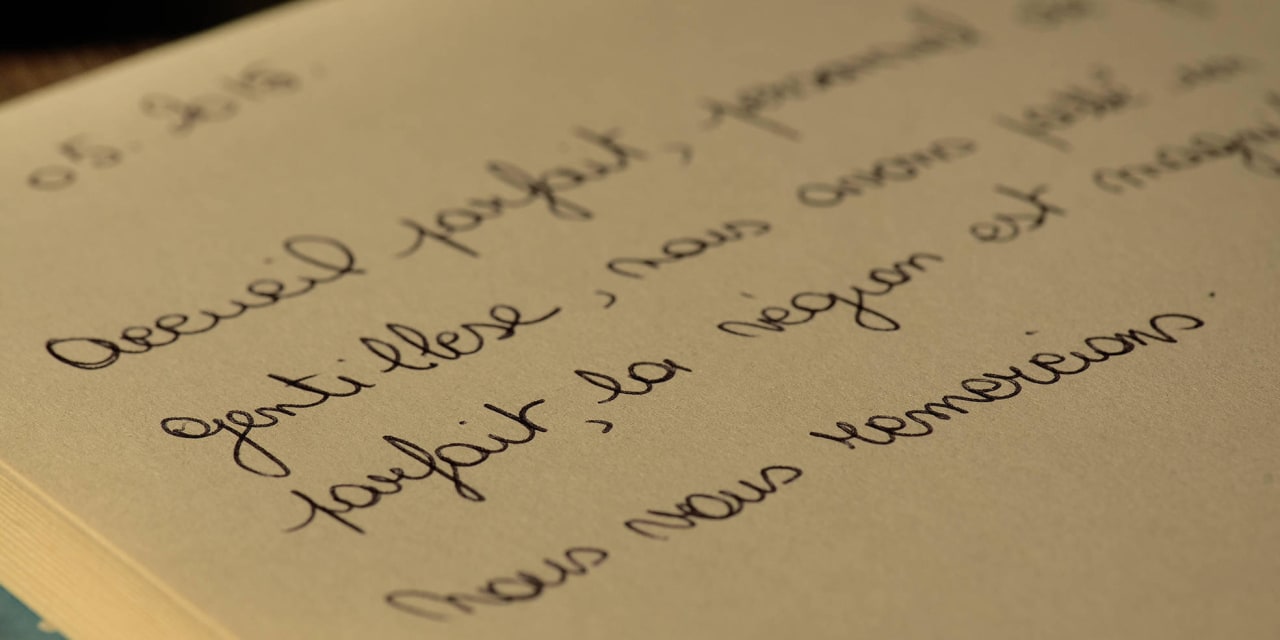 05.2018.
Accueil parfait, personnel
gentillese, nous avons passé un
parfait, la région est
nous vous remercions.